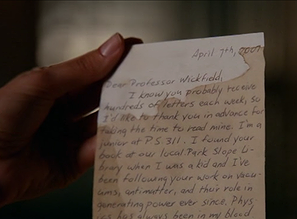 April 7th, 2007
Dear Professor Wickfield,
I know you probably receive
hundreds of letters each week, so
I'd like to thank you in advance for
taking the time to read mine. I'm a
junior at P.S. 311. I found your
book at our local Park Slope Li-
brary when I was a kid and I've
been following your work on vacu-
ums, antimatter, and their role in
generating power ever since. Phys-
ics has always been in my blood